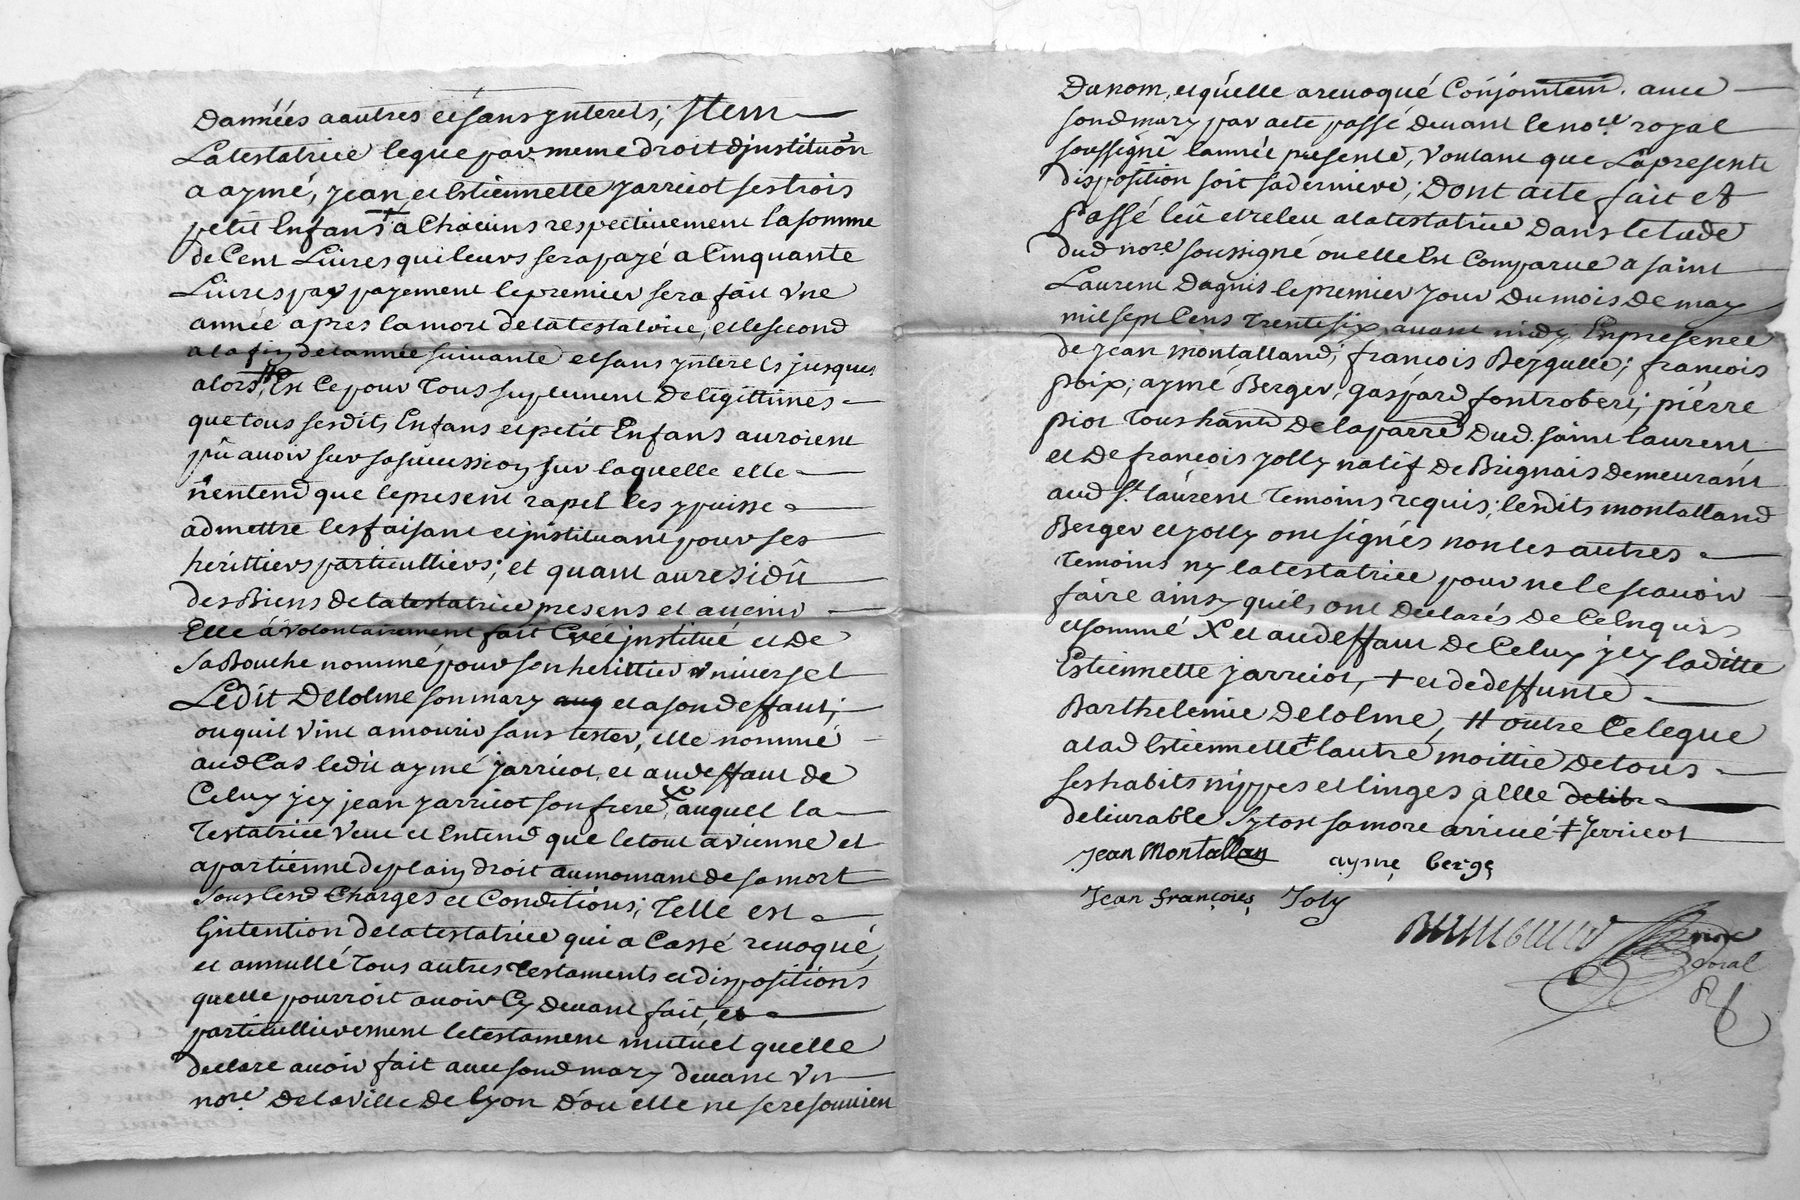 D'années a autres et sans ynterets; Item
La testatrice legue par meme droit d'jnstitution
a aymé, jean, et Estiennette jarricot ses trois
petit Enfans a Chacuns respectivement la somme
de Cent Livres qui leurs sera payé a Cinquante
Livres par payement le premier sera fait vne
année apres la mort de la testatrice, et le second
a la fin de l'année suivante et sans ynterets jusques
alors, Et Ce pour Tous suplement De légittimes
que tous sesdits Enfans et petit Enfans auroient
pû avoir sur sa succession sur laquelle elle
n'entend que le present rapel les y puisse
admettre les faisant et jnstituant pour ses
hérittiers particulliers; et quant au residû
des Biens de la testatrice presens et avenir
Elle a volontairement fait Créé jnstitué et De
sa Bouche nommé pour son herittier universel
Ledit Delolme son mary et a son deffaut;
ou quil vint a mourir sans tester, elle nomme
aud Cas ledit aymé jarricot, et au deffaut de
Celuy jcy jean jarricot son frere X auquel la
Testatrice Veut et Entend que le tout avienne et
apartienne de plain droit au momant de sa mort
sous lesd Charges et Conditions; Telle est
L'intention De la testatrice qui a Cassé revoqué,
et annullé Tous autres Testaments et dispositions
quelle pourroit avoir Cy devant fait, et
particullierement le testament mutuel quelle
declare avoir fait avec sond mary devant Vn
nore De la Ville De Lyon D'ou elle ne se resouvien
Du nom, et qu'elle a revoqué Conjointemt. avec
sond mary par acte passé devant le nore royal
soussigné l'année presente, voulant que La presente
disposition soit sa derniere; Dont acte fait et
Passé leû et releu a la testatrice Dans letude
dud nore soussigné ou elle Est Comparue a saint
Laurent Dagnis le premier Jour Du mois De may
mil sept Cens Trente six avant midy, En presence
de jean montalland; françois Beygulle; françois
poix; aymé Berger; gaspard fontrobert; pierre
piot Tous habts De la parre Dud. saint laurent
et De françois jolly natif De Brignais demeurant
aud St. laurent Temoins requis; lesdits montalland
Berger et jolly ont signés non les autres
Temoins ny la testatrice pour ne le scavoir
faire ainsy quils ont Declarés De Ce Enquis
et sommé X et au deffaut De Celuy jcy laditte
Estiennette jarricot, + et de deffunte
Barthelemie Delolme, # outre Ce legue
a lad Estiennette lautre moittie De tous
ses habits nippes et linges a Elle delibr
delivrable sytost sa mort arrivé ‡ Jerricot
Jean Montallan ayme berge
Jean françoies Joly
nore
roial